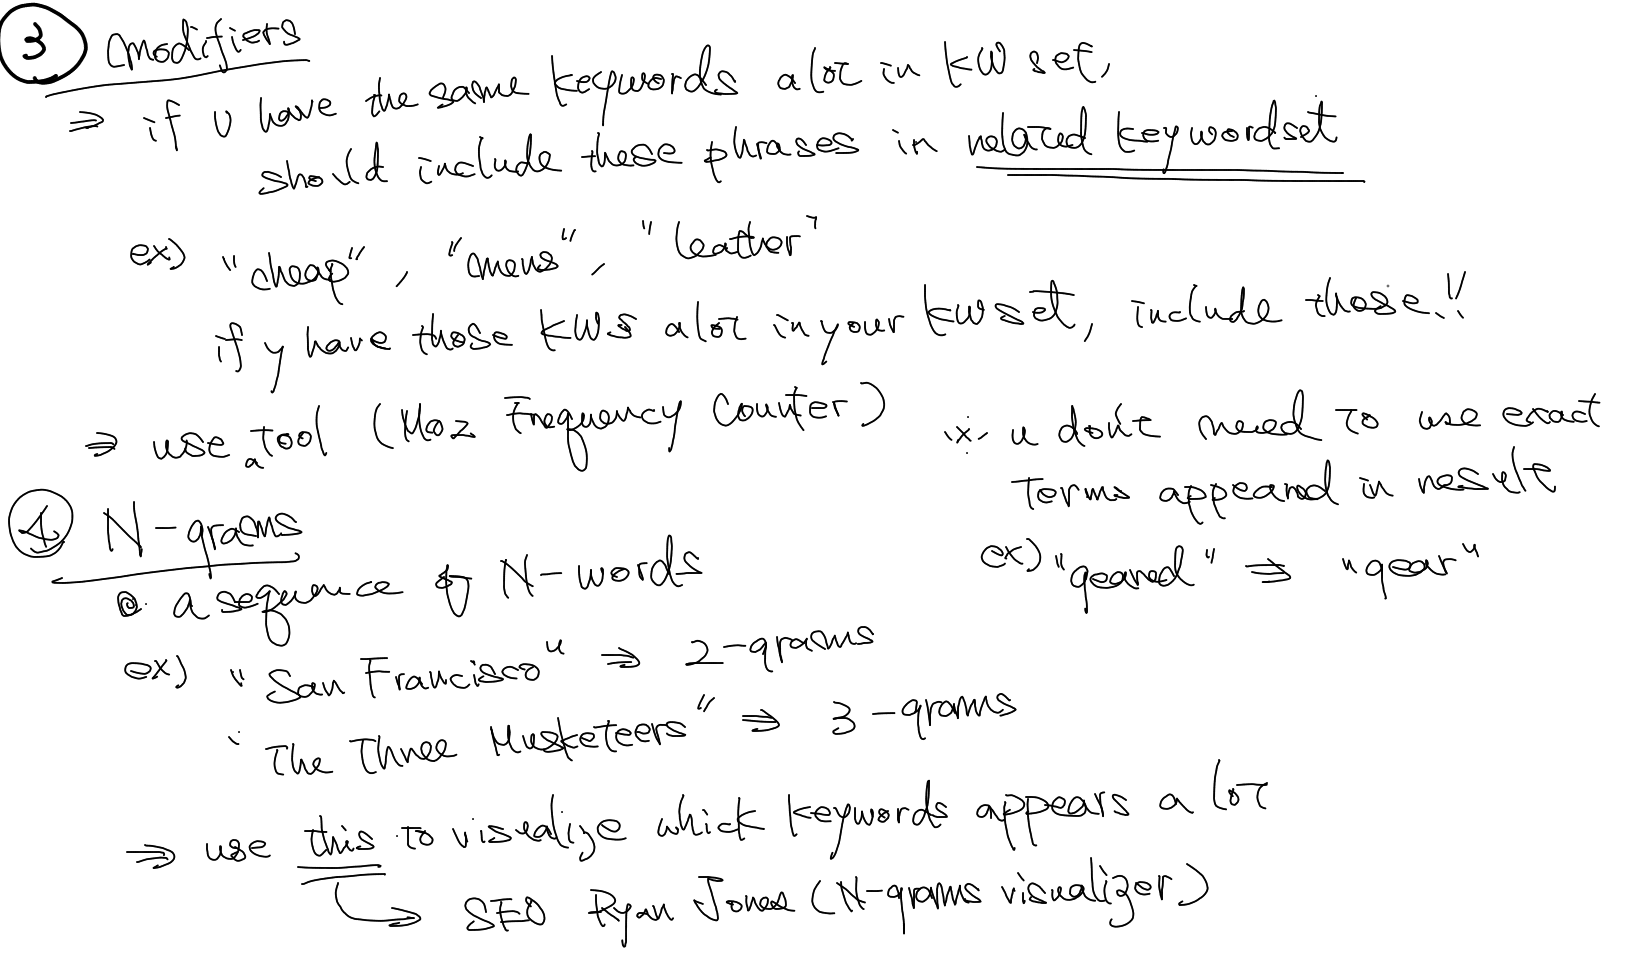 3 modifiers
⇒ if u have the same keywords alot in KW set,
should include these phrases in related keywordset
ex) "cheap", "mens", "leather"
if y have those KWS alot in your kwset, include those!!
⇒ use a tool (Moz Frequency Counter)
※ u don't need to use exact
terms appeared in result
ex) "geared" ⇒ "gear"
4 N-grams
a sequence of N-words
ex) "San Francisco" ⇒ 2-grams
"The Three Musketeers" ⇒ 3-grams
⇒ use this to visualize which keywords appears a lot
SEO Ryan Jones (N-grams visualizer)